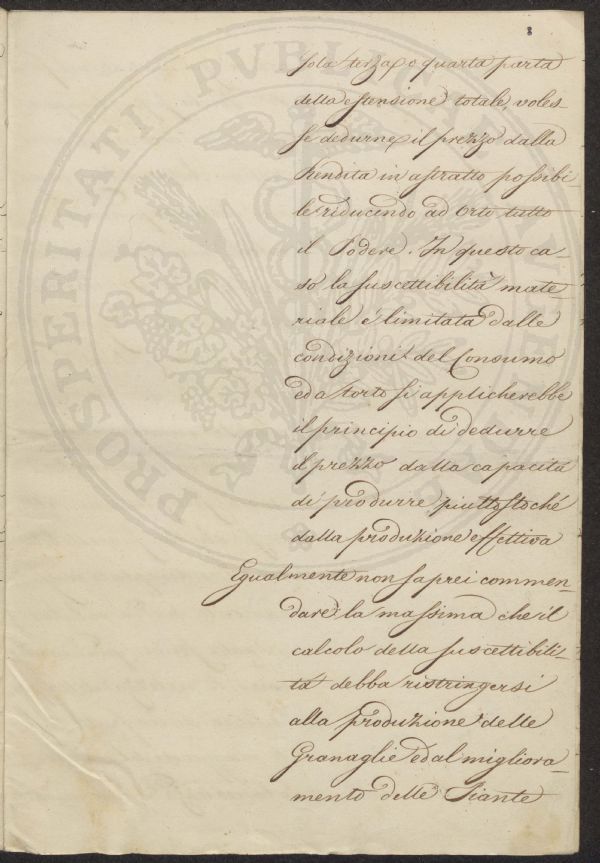 8
sola terza o quarta parta
della estensione totale, voles-
se dedurne il prezzo dalla
Rendita in astratto possibi-
le riducendo ad Orto tutto
il Podere. In questo ca-
so la suscettibilità mate-
riale é limitata dalle
condizioni del Consumo
ed a torto si applicherebbe
il principio di dedurre
il prezzo dalla capacità
di produrre piuttostoché
dalla produzione effettiva
Egualmente non saprei commen-
dare la massima che il
calcolo della suscettibili-
tà debba ristringersi
alla produzione delle
Granaglie ed al migliora-
mento delle Piante
PROSPERITATI PVBLICAE